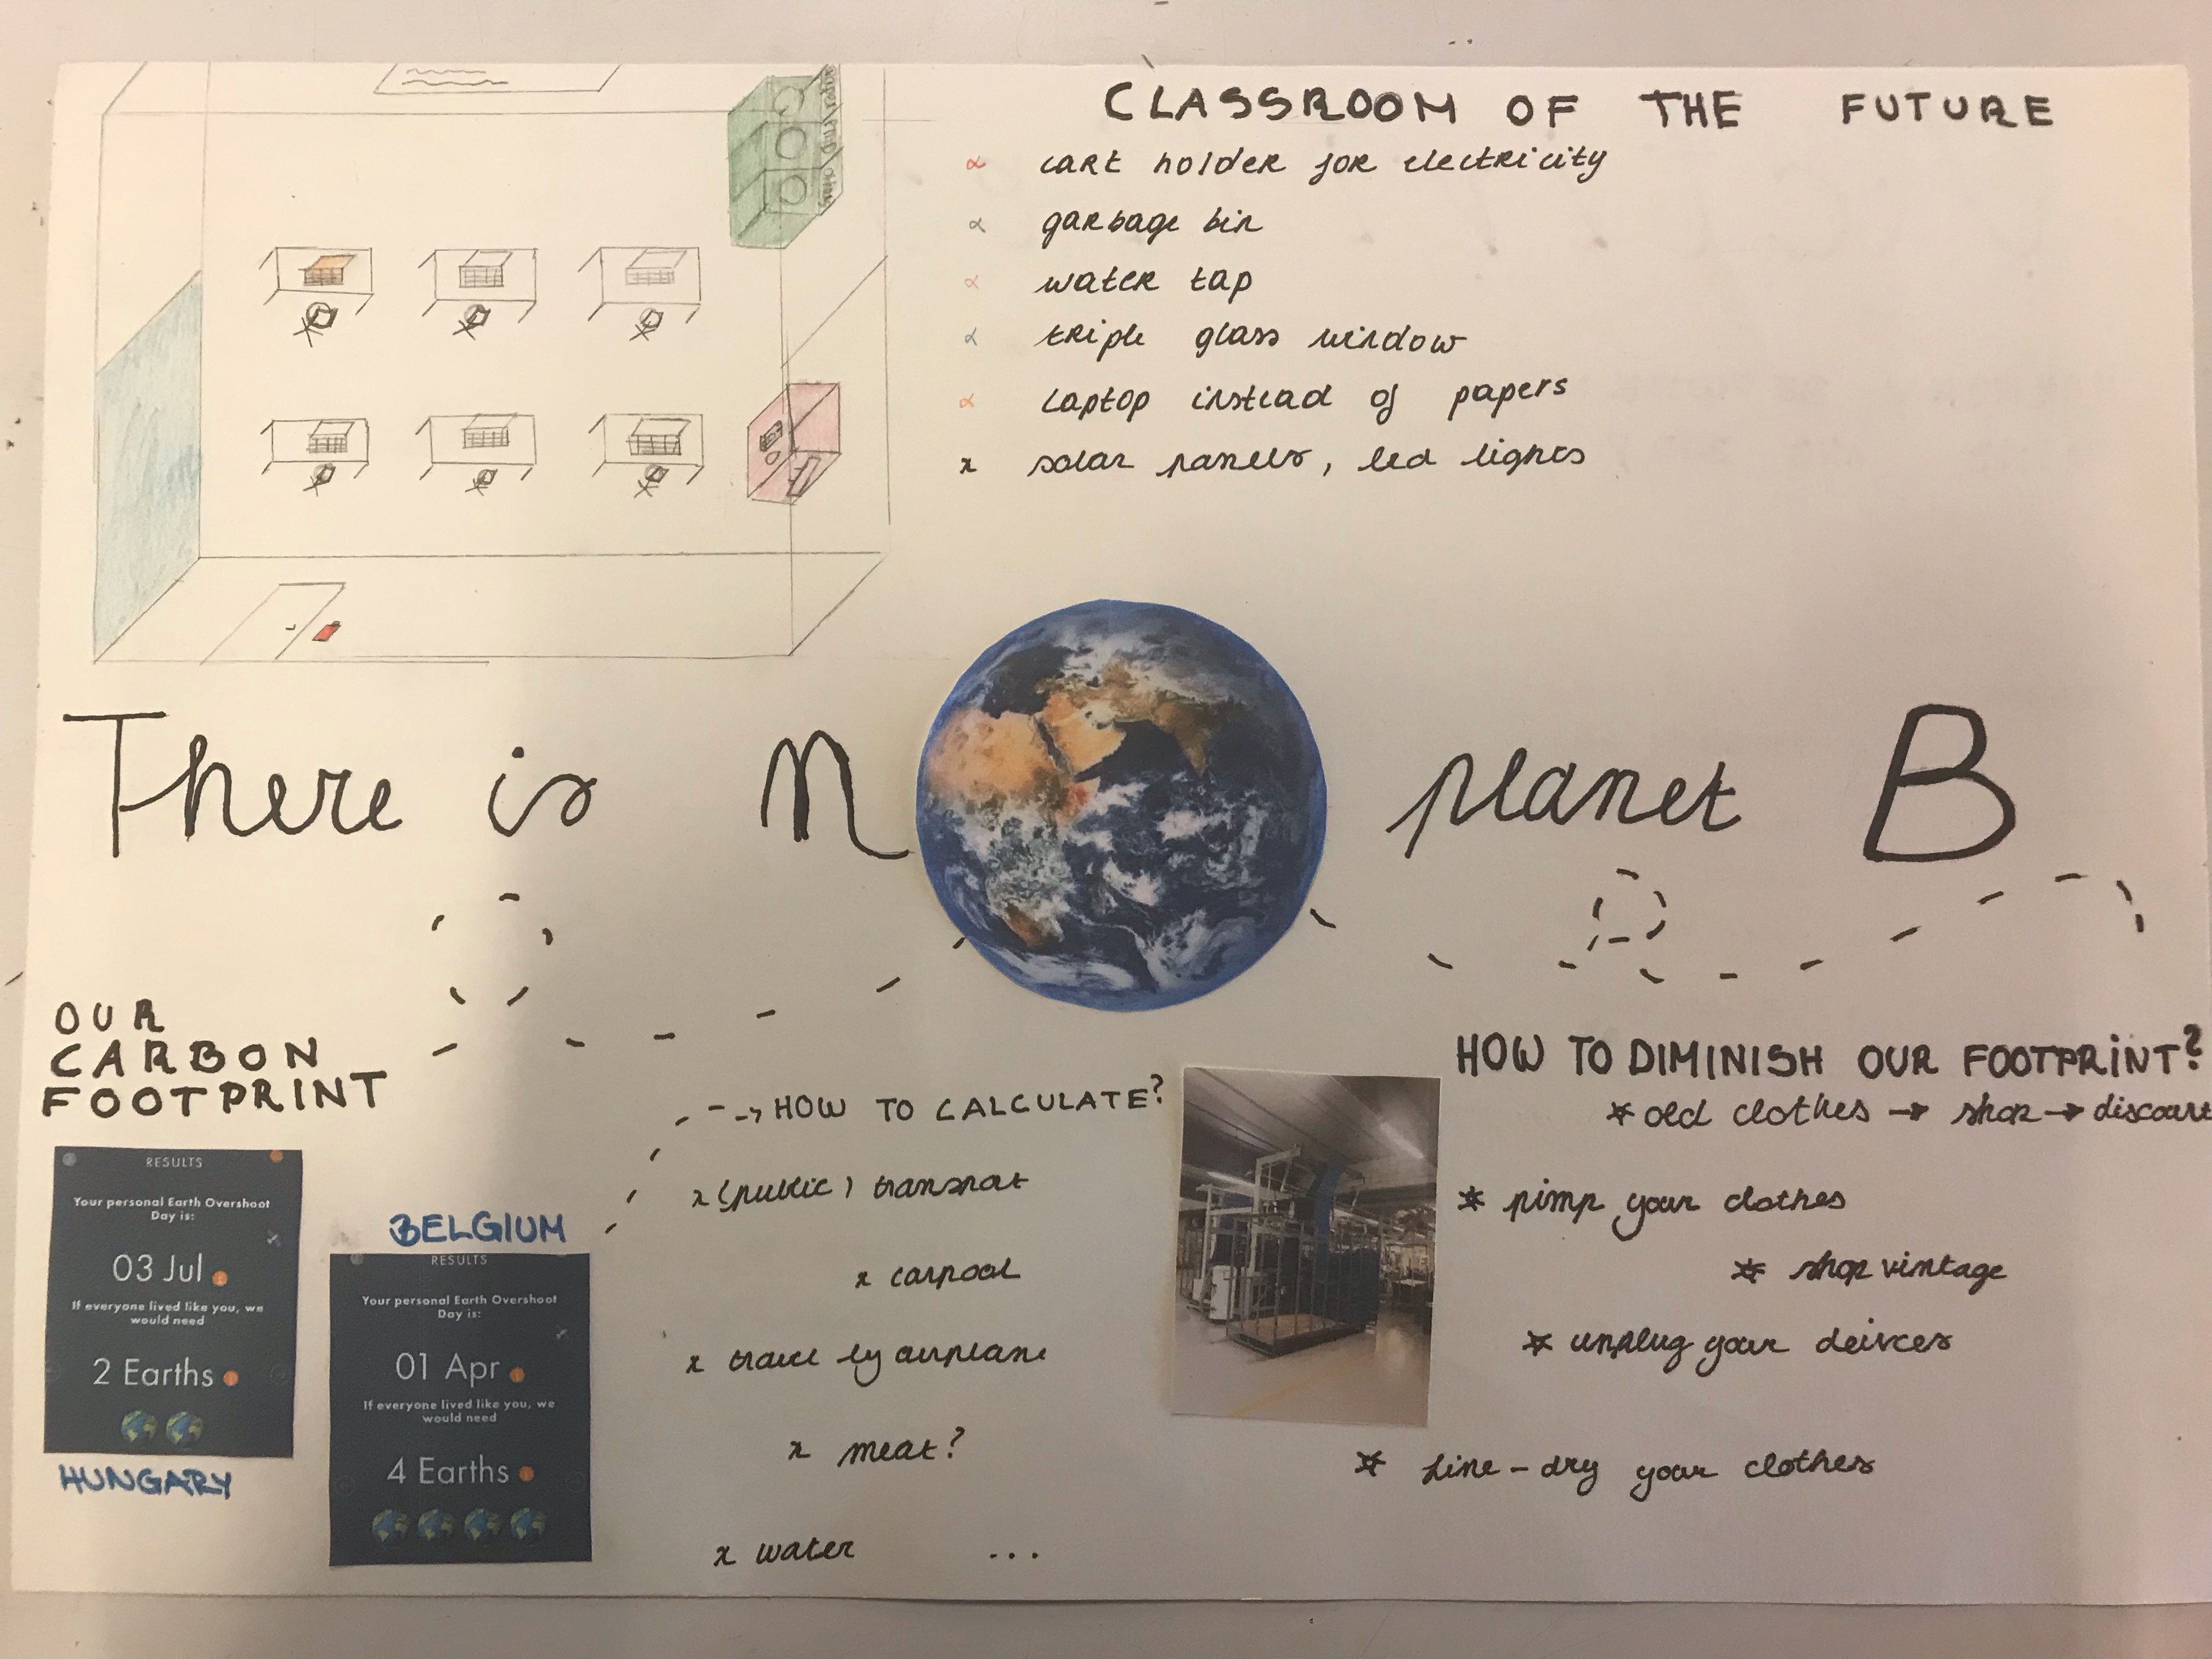 CLASSROOM OF THE FUTURE
cart holder for electricity
garbage bin
water tap
triple glass window
laptop instead of papers
x solar panels, led lights
paper PMD
There is N planet B
OUR
CARBON
FOOTPRINT
RESULTS
Your personal Earth Overshoot
Day is:
03 Jul
If everyone lived like you, we
would need
2 Earths
HUNGARY
BELGIUM
RESULTS
Your personal Earth Overshoot
Day is:
01 Apr
If everyone lived like you, we
would need
4 Earths
HOW TO CALCULATE?
x (public) transport
x carpool
x travel by airplane
x meat?
x water ...
HOW TO DIMINISH OUR FOOTPRINT?
* old clothes → shop → discount
* pimp your clothes
* shop vintage
* unplug your deivces
* line-dry your clothes